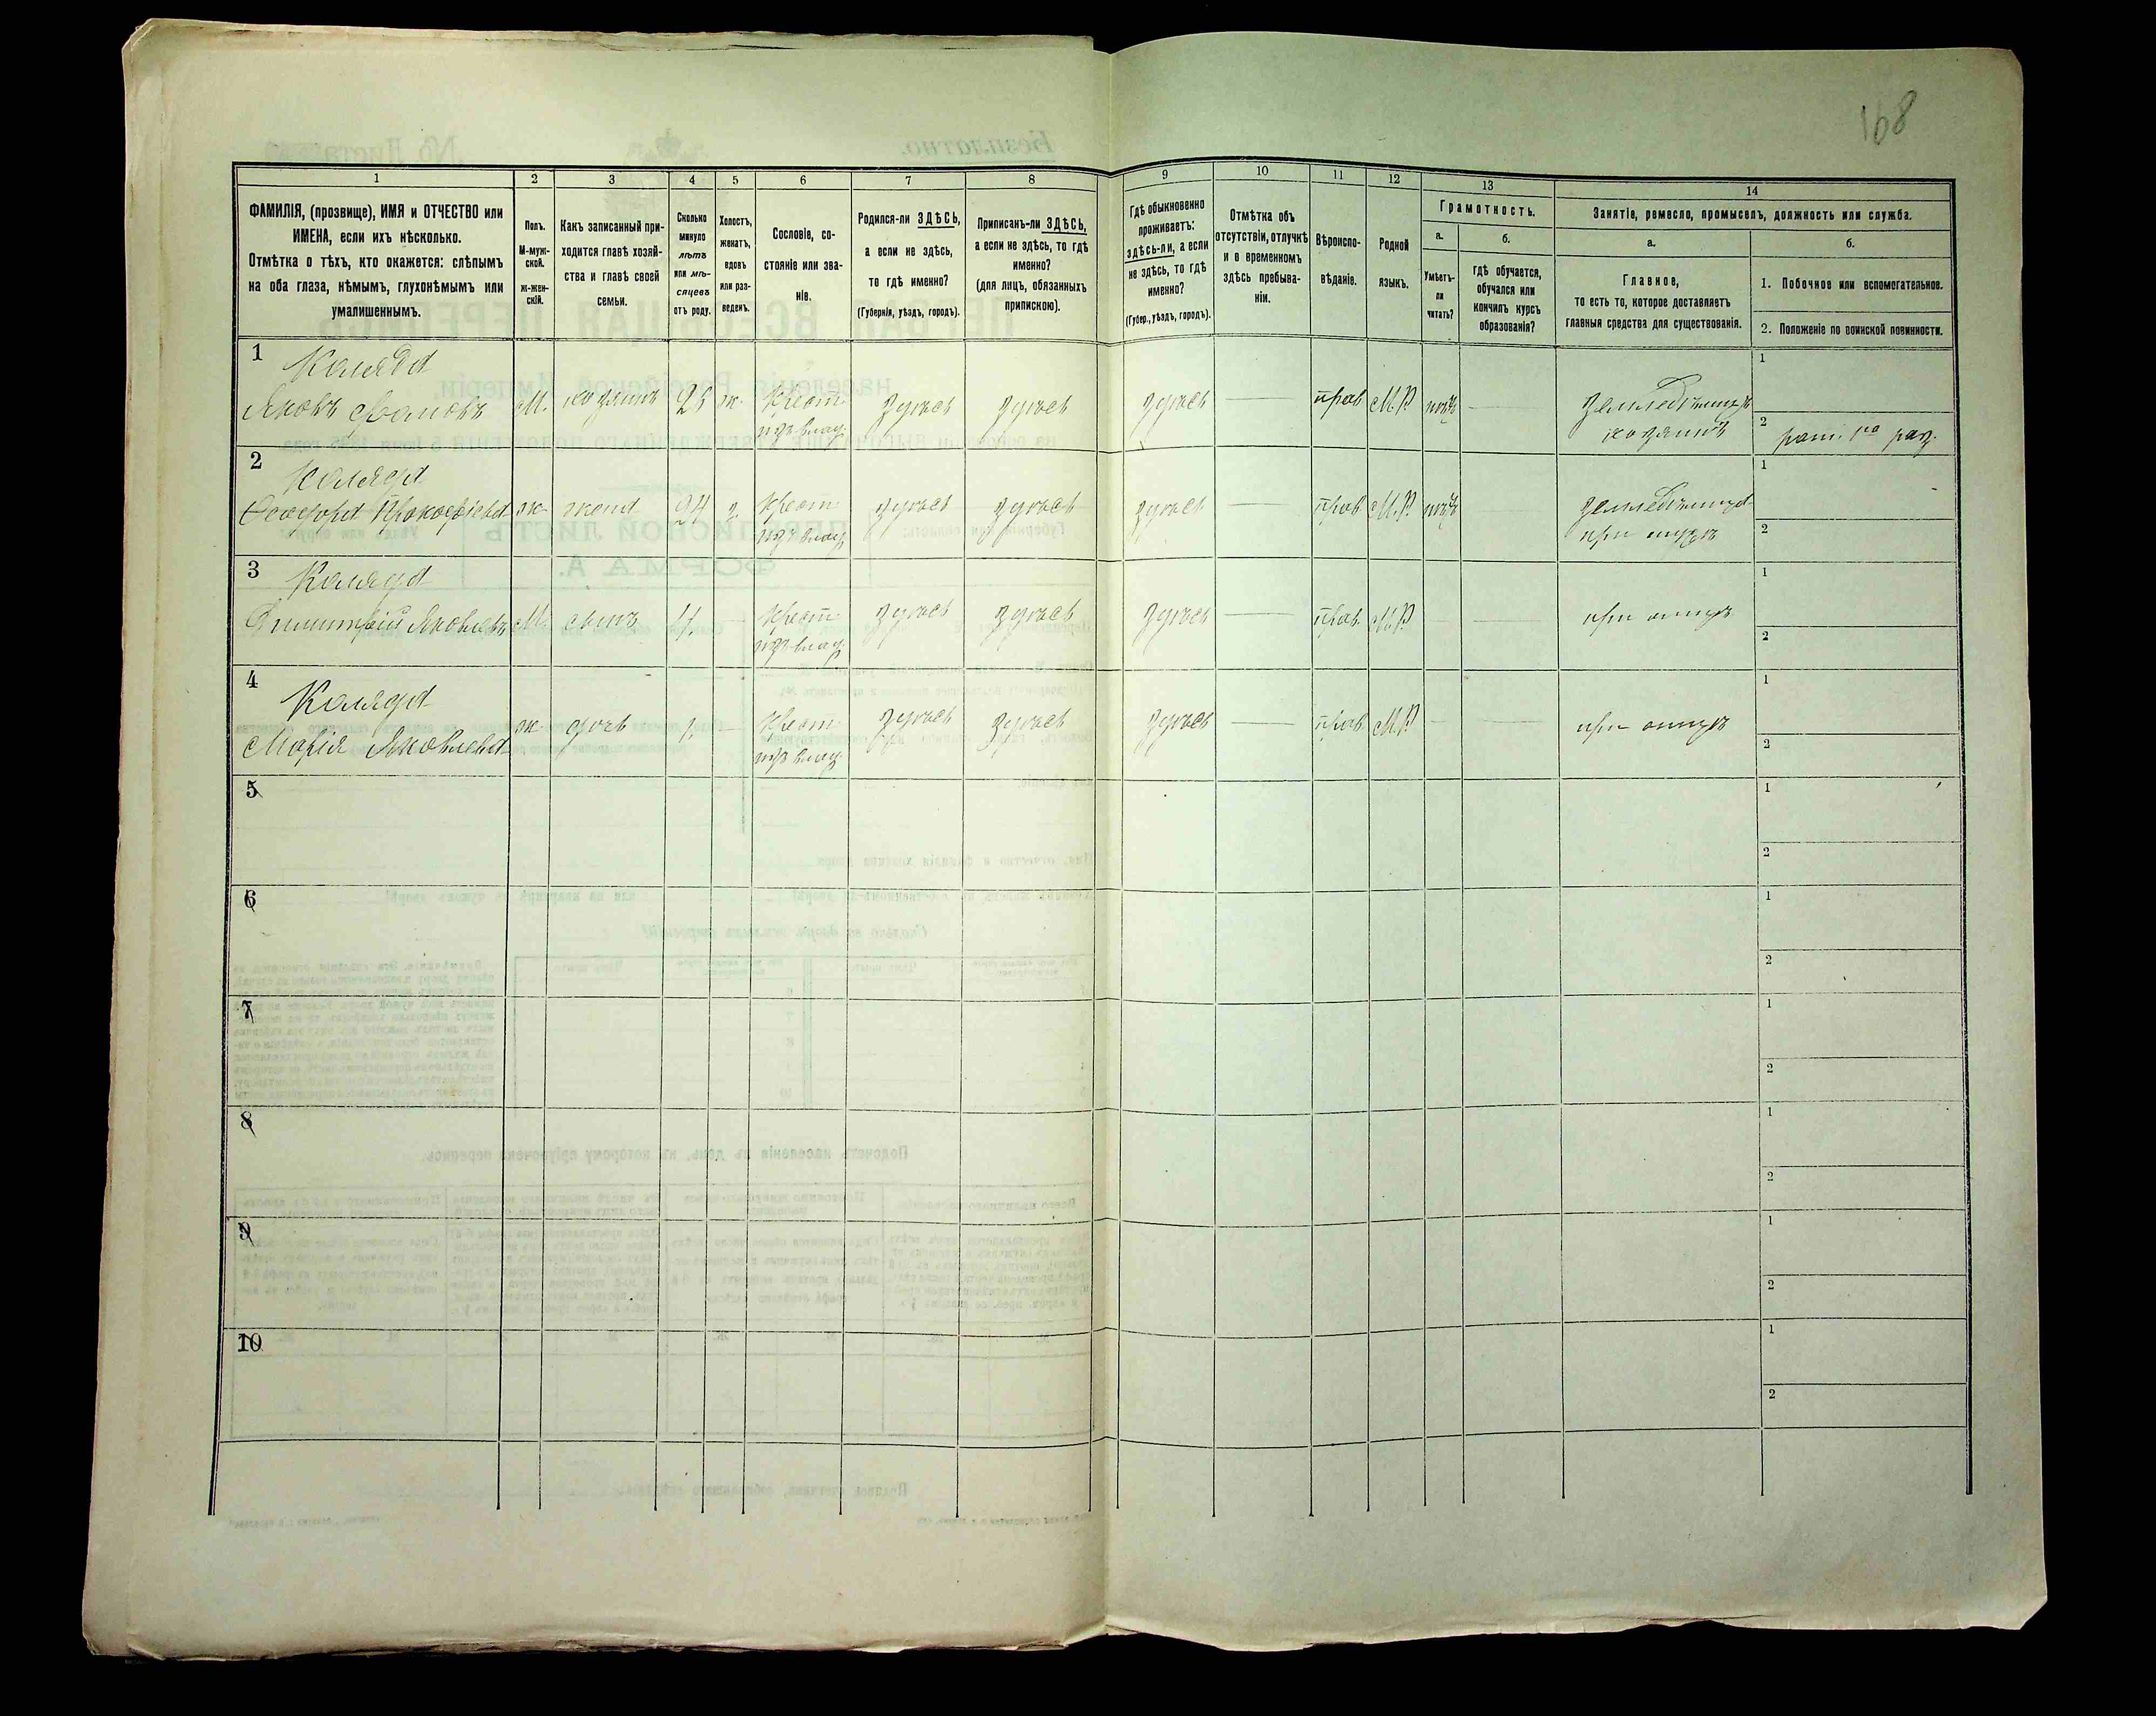 168
1
2
3
4
5
6
7
8
9
10
11
12
13
14
ФАМИЛІЯ, (прозвище), ИМЯ и ОТЧЕСТВО или
ИМЕНА, если ихъ нѣсколько.
Отмѣтка о тѣхъ, кто окажется: слѣпымъ
на оба глаза, нѣмымъ, глухонѣмымъ или
умалишеннымъ.
Полъ.
М-муж-
ской.
Ж-жен-
скій.
Какъ записанный при-
ходится главѣ хозяй-
ства и главѣ своей
семьи.
Сколько
минуло
лѣтъ
или мѣ-
сяцевъ
отъ роду.
Холостъ,
женатъ,
вдовъ
или раз-
веденъ.
Сословіе, со-
стояніе или зва-
ніе.
Родился-ли ЗДѢСЬ,
а если не здѣсь,
то гдѣ именно?
(Губернія, уѣздъ, городъ).
Приписанъ-ли ЗДѢСЬ,
а если не здѣсь, то гдѣ
именно?
(для лицъ, обязанныхъ
припискою).
Гдѣ обыкновенно
проживаетъ:
здѣсь-ли, а если
не здѣсь, то гдѣ
именно?
(Губер., уѣздъ, городъ).
Отмѣтка объ
отсутствіи, отлучкѣ
и о временномъ
здѣсь пребыва-
ніи.
Вѣроиспо-
вѣданіе.
Родной
языкъ.
Грамотность.
а.
Умѣетъ-
ли
читать?
б.
гдѣ обучается,
обучался или
кончилъ курсъ
образованія?
Занятіе, ремесло, промыселъ, должность или служба.
а.
Главное,
то есть то, которое доставляетъ
главныя средства для существованія.
б.
1. Побочное или вспомогательное.
2. Положеніе по воинской повинности.
1 Коляда
Яковъ М. хозяинъ ж. Крест. здѣсь здѣсь здѣсь — прав М.Р. нѣтъ — земледѣлецъ 1
изъ влад. хозяинъ 2 рат. 1го раз.
2 Коляда
Ѳеодора Прокофіева ж. жена 24 з. Крест. здѣсь здѣсь здѣсь — прав М.Р. нѣтъ земледѣлица 1
изъ влад. при мужѣ 2
3 Коляда
Димитрій Яковлевъ М. сынъ 4. — Крест. здѣсь здѣсь здѣсь — прав. М.Р. — — при отцѣ 1
изъ влад. 2
4 Коляда
Марія Яковлева ж. дочь 1. — Крест. здѣсь здѣсь здѣсь — прав М.Р. — — при отцѣ 1
изъ влад. 2
5 1
2
6 1
2
7 1
2
8 1
2
9 1
2
10 1
2